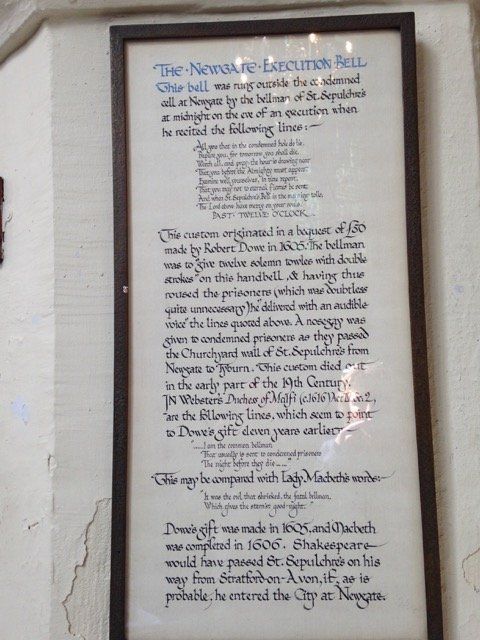 THE·NEWGATE·EXECUTION BELL
This bell was rung outside the condemned
cell at Newgate by the bellman of St. Sepulchre's
at midnight on the eve of an execution when
he recited the following lines:-
All you that in the condemned hole do lie,
Prepare you, for tomorrow you shall die.
Watch all, and pray; the hour is drawing near
That you before the Almighty must appear.
Examine well yourselves, in time repent,
That you may not to eternal flames be sent.
And when St. Sepulchre's Bell in the morning tolls,
The Lord above have mercy on your souls.
PAST TWELVE O'CLOCK
This custom originated in a bequest of £50
made by Robert Dowe in 1605. The bellman
was to "give twelve solemn towles with double
strokes" on this handbell, & having thus
roused the prisoners (which was doubtless
quite unnecessary) he "delivered with an audible
voice" the lines quoted above. A nosegay was
given to condemned prisoners as they passed
the Churchyard wall of St. Sepulchre's from
Newgate to Tyburn. This custom died out
in the early part of the 19th Century.
IN Webster's Duchess of Malfi (c.1616 sc. 2,
are the following lines, which seem to point
to Dowe's gift eleven years earlier:
"......I am the common bellman,
That usually is sent to condemned prisoners
The night before they die......"
This may be compared with Lady Macbeth's words:-
"It was the owl, that shrieked, the fatal bellman,
Which gives the stern'st good-night."
Dowe's gift was made in 1605, and Macbeth
was completed in 1606. Shakespeare
would have passed St. Sepulchre's on his
way from Stratford-on-Avon, if, as is
probable, he entered the City at Newgate.